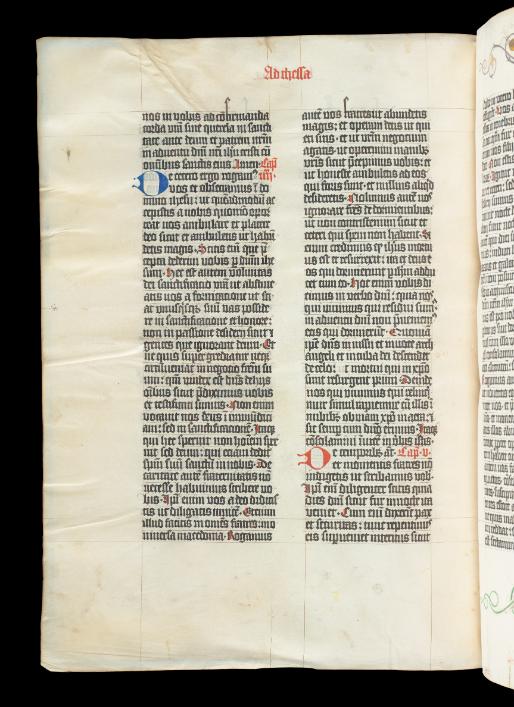 Ad thessa
nos in vobis ad cōfirmanda
corda vr̄a sine querela in sancti
tate ante deum et patrem nr̄m
in adventu dn̄i nr̄i ihesu cristi cū
omībus sanctis eius Amen Cap̄
De cetero ergo rogam⁹ iiij.
vos et obsecramus ī do
mino ihesu: ut quēadmodū ac
cepistis a nobis quomō opor
teat vos ambulare et placere
deo sicut et ambulatis ut habūdetis
magis. Scitis enī que p̄
cepta dederim vobis p dn̄m ihe
sum. Hec est autem voluntas
dei sanctificatio vr̄a ut abstine
atis vos a fornicatione ut sci
at vnusq̄sq̄ suū vas posside
re in sanctificatione et honore:
non in passione desiderii sicut ⁊
gentes que ignorant deum. Et
ne quis supergrediatur neq̄
circūveniat in negotio frēm su
um: qm̄ vindex est dn̄s de hijs
oībus sicut p̄diximus vobis
et testificati sumus. Non enim
vocavit nos deus ī immūdici
am: sed in sanctificationē. Itaq̄
qui hec spernit non hoīem sper
nit sed deum: qui etiam dedit
spm̄ suū sanctū in nobis. De
caritate autē fraternitatis nō
necesse habuimus scribere vo
bis. Ipsi enim vos a deo didicis
tis ut diligatis invicē. Etenim
illud facitis in omnes fratres: in o
mniversa macedonia. Rogamus
autē vos fratres ut abundetis
magis: et operam detis ut qui
eti sitis: et ut vr̄m negotium
agatis: et operemini manib⁹
vr̄is sicut p̄cepimus vobis: et
ut honeste ambuletis ad eos
qui foris sunt: et nullius aliqd
desideretis. Nolumus autē vos
ignorare fr̄es de dormientibus:
ut non contristemini sicut et
ceteri qui spem non habent. Si
enim credimus q̄ ihesus mortu
us est et resurrexit: ita et deus e
os qui dormierunt p ihm̄ addu
cet cum eo. Hoc enim vobis di
cimus in verbo dn̄i: quia nos
qui vivimus qui residui sum⁹
in adventu dn̄i nō p̄veniem⁹
eos qui dormierūt. Quoniā
ipe dn̄s in iussu et in voce arch
angeli et in tuba dei descendet
de celo: ⁊ mortui qui in xp̄o
sunt resurgent primi. Deinde
nos qui vivimus qui relinq̄
mur simul rapiemur cū illis ī
nubibus obviam xp̄o in aera: ⁊
sic semp cum dn̄o erimus. Itaq̄
cōsolamini īvicē in v̄bis istis.
De temporibus āt Cap̄. v.
et momentis fratres nō
indigetis ut scribamus vob̄.
Ipsi enī diligenter scitis quia
dies dn̄i sicut fur in nocte ita
veniet. Cum enī dixerit pax
et securitas: tunc repentinus
eis supveniet interitus sicut